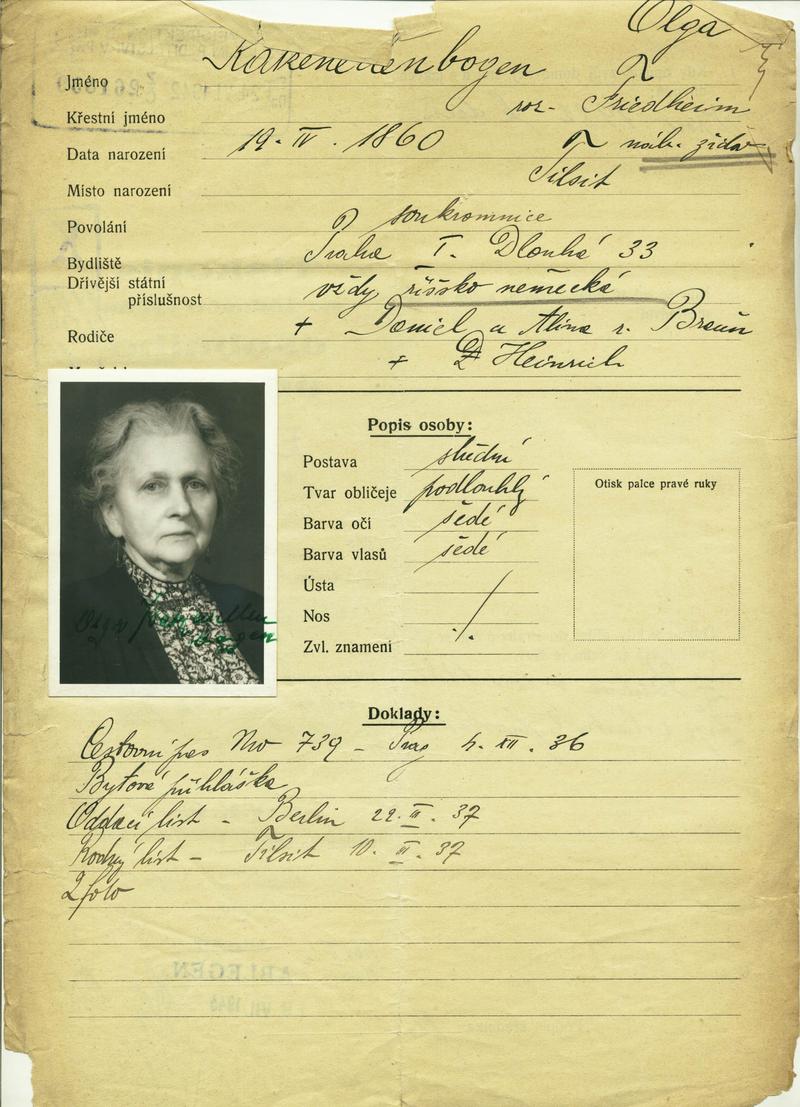 Olga
Jméno
roz. Friedheim
Křestní jméno
Data narození 19. IV. 1860 náb. židov
Místo narození Tilsit
Povolání soukromnice
Bydliště Praha I. Dlouhá 33
Dřívější státní
příslušnost vždy říšsko německá
Rodiče + Daniel a Alina r. Braun
+ Heinrich
Popis osoby:
Postava střední
Tvar obličeje podlouhlý
Barva očí šedé
Barva vlasů šedé
Ústa
Nos
Zvl. znamení
Otisk palce pravé ruky
Olga
Doklady:
Cestovní pas No 739 - Prag 4. XII. 36
Bytová přihláška
Oddací list - Berlin 22. II. 37
Rodný list - Tilsit 10. II. 37
2 foto